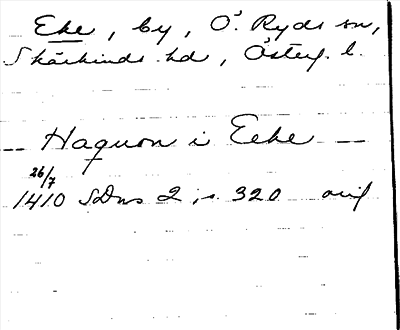 Eke, by, Ö. Ryds sn,
Skärkinds hd, Österg. l.
— Haquon i Eeke —
26/7
1410 SDns 2, s. 320 orig